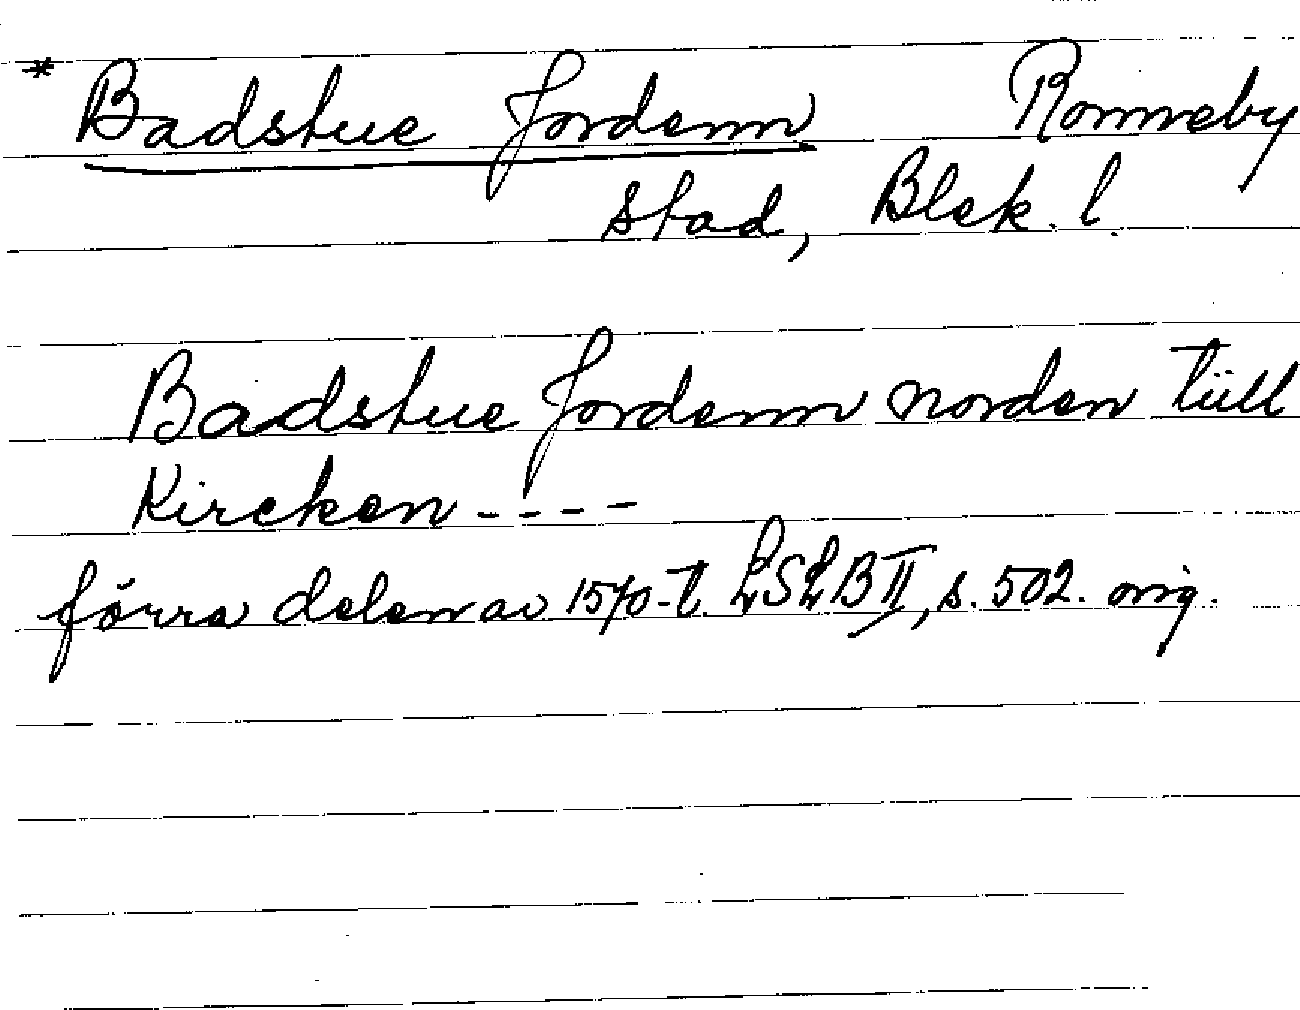 * Badstue Jordenn Ronneby
stad, Blek. l.
Badstue Jordenn norden tüll
Kircken ----
förra delen av 1570-t. LSLB II, s. 502. orig.